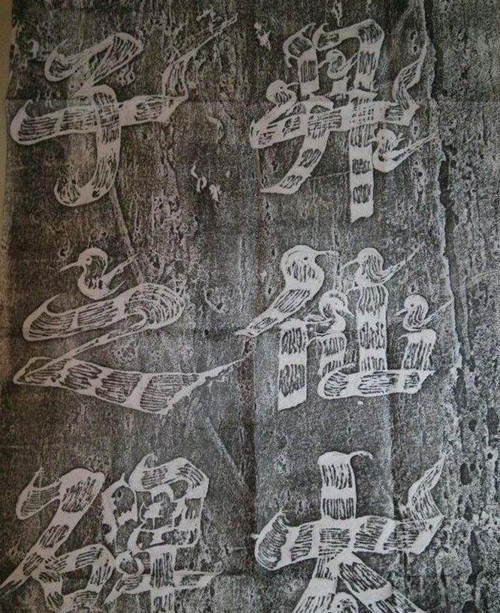 升仙太
子之碑